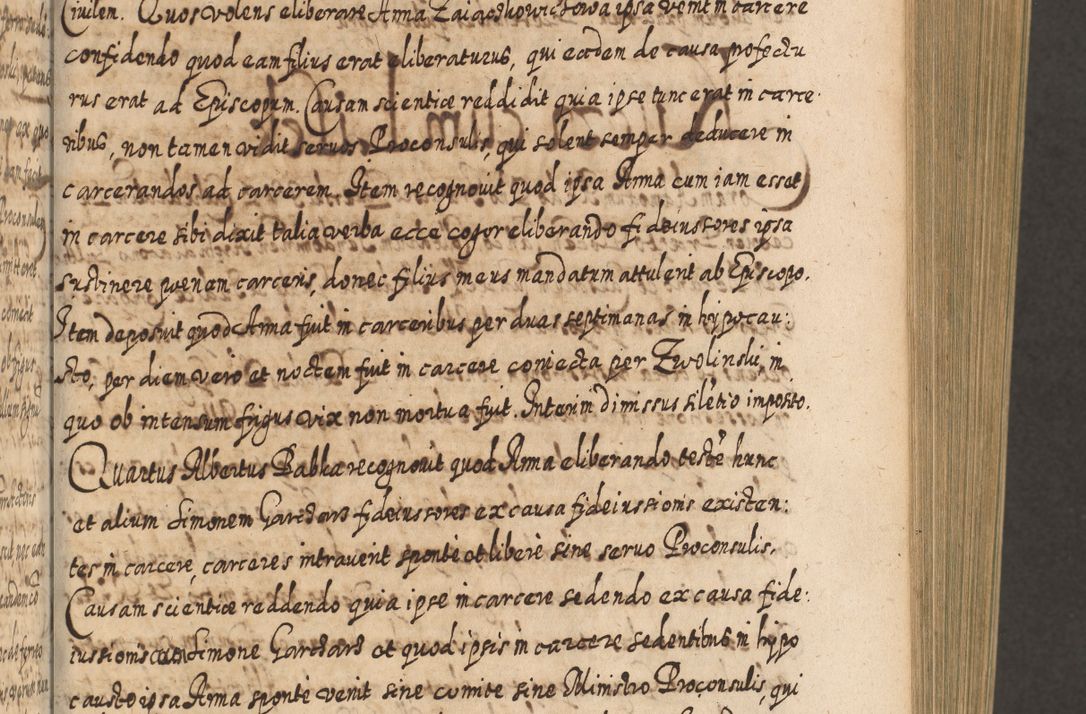 Ciuilem. Quos volens eliberare Anna Zaiączkowicowa ipsa venit in carcere
confidendo quod eam filius erat eliberaturus, qui eadem de causa profectu
rus erat ad Episcopum. Causam scientiæ reddidit quia ipse tunc erat in carce:
ribus, non tamen vidit servos Proconsulis, qui solent semper deducere in
carcerandos ad carcerem. Item recognovit quod ipsa Anna cum iam esset
in carcere sibi dixit talia verba ecce cogor eliberando fideiussores ipsa
sustinere pænam carceris, donec filius meus mandatum attulerit ab Episcopo.
Item deposuit quod Anna fuit in carceribus per duas septimanas in hypocau:
sto, per diem vero et noctem fuit in carcere coniecta per Zwolinski, in
quo ob intensum frigus vix non mortua fuit. Interim dimissus silẽtio imposito.
Quartus Albertus Babka recognovit quod Anna eliberando testẽ hunc
et alium Simonem Garczars fideiussores ex causa fideiussionis existen:
tes in carcere, carceres intraverit sponte et libere sine servo Proconsulis.
Causam scientiæ reddendo quia ipse in carcere sedendo ex causa fide:
iussionis cum Simone Garczars et quod ipsis in carcere sedentibus in hypo
causto ipsa Anna sponte venit sine comite sine Ministro Proconsulis, qui